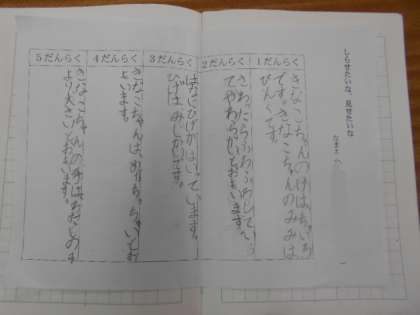 しらせたいな、見せたいな
なまえ
1だんらく
きなこちゃんのけは、ちゃいろ
です。きなこちゃんのみみは
ぴんくです。
2だんらく
さわったらふわふわしてい
てやわらかいとおもいます。
3だんらく
はなにひげがはいています。
ひげはみじかいです。
4だんらく
きなこちゃんは、めは
といます。
5だんらく
きなこちゃんの手は、おもとのす
より大さいとおもいます。